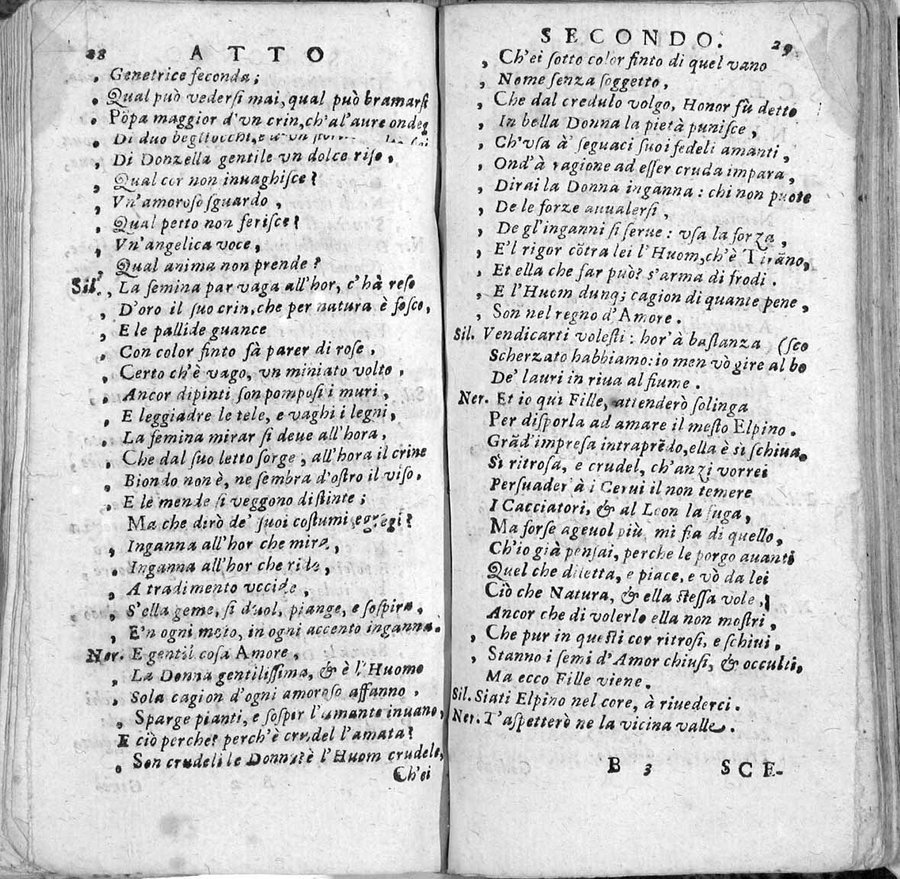 28 ATTO
, Genetrice feconda;
, Qual può vedersi mai, qual può bramarsi
, Põpa maggior d'vn crin, ch'al'aure ondeg
Di duo begl'occhi, e d'vn
Di Donzella gentile vn dolce riso,
, Qual cor non inuaghisce?
, Vn'amoroso sguardo,
, Qual petto non ferisce?
, Vn'angelica voce,
, Qual anima non prende?
Sil. , La femina par vaga all'hor, c'hà reso
, D'oro il suo crin, che per natura è fosco,
, E le pallide guance
, Con color finto fà parer di rose,
, Certo ch'è vago, vn miniato volto,
, Ancor dipinti son pomposi i muri,
, E leggiadre le tele, e vaghi i legni,
, La femina mirar si deue all'hora,
, Che dal suo letto sorge, all'hora il crine
, Biondo non è, ne sembra d'ostro il viso,
, E le mende si veggono distinte;
, Ma che dirò de' suoi costumi egregi?
, Inganna all'hor che mira,
, Inganna all'hor che ride,
, A tradimento vccide,
, S'ella geme, si duol, piange, e sospira,
, E'n ogni moto, in ogni accento inganna.
Ner. , E gentil cosa Amore,
, La Donna gentilissima, & è l'Huomo
, Sola cagion d'ogni amoroso affanno,
, Sparge pianti, e sospir l'amante inuano,
E ciò perche? perch'è crudel l'amata?
, Son crudeli le Donne? è l'Huom crudele,
Ch'ei
SECONDO. 29
, Ch'ei sotto color finto di quel vano
, Nome senza soggetto,
, Che dal credulo volgo, Honor fù detto
, In bella Donna la pietà punisce,
, Ch'vsa à seguaci suoi fedeli amanti,
, Ond'à ragione ad esser cruda impara,
, Dirai la Donna inganna: chi non puote
, De le forze auualersi,
, De gl'inganni si serue: vsa la forza,
, E'l rigor cõtra lei l'Huom, ch'è Tirãno,
, Et ella che far può? s'arma di frodi.
, E l'Huom dunq; cagion di quante pene,
, Son nel regno d'Amore.
Sil. Vendicarti volesti: hor'à bastanza (sco
Scherzato habbiamo: io men vò gire al bo
De' lauri in riua al fiume.
Ner. Et io qui Fille, attenderò solinga
Per disporla ad amare il mesto Elpino.
Grãd'impresa intraprẽdo, ella è sì schiua,
Sì ritrosa, e crudel, ch'anzi vorrei
Persuader à i Cerui il non temere
I Cacciatori, & al Leon la fuga,
Ma forse ageuol più mi fia di quello,
Ch'io già pensai, perche le porgo auanti
Quel che diletta, e piace, e vò da lei
Ciò che Natura, & ella stessa vole,
Ancor che di volerlo ella non mostri,
, Che pur in questi cor ritrosi, e schiui,
, Stanno i semi d'Amor chiusi, & occulti,
Ma ecco Fille viene.
Sil. Siati Elpino nel core, à riuederci.
Ner. T'aspetterò ne la vicina valle.
B 3 SCE-